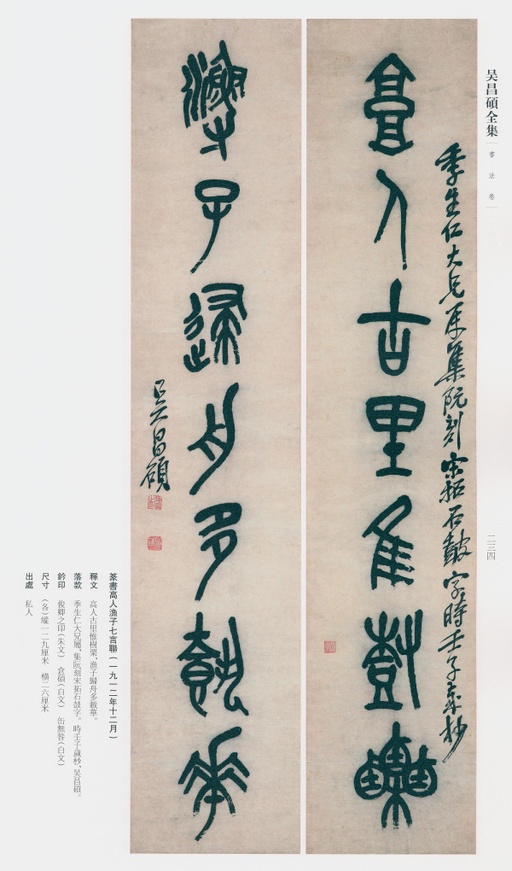 吴昌碩全集
書法卷
二三四
季生仁大兄屬集阮刻宋拓石鼓字時壬子歲杪
高人古里隹樹栗
漁子歸舟多𫉬華
吴昌碩
篆書高人漁子七言聯（一九一二年十二月）
釋文 高人古里惟樹栗，漁子歸舟多載華。
落款 季生仁大兄屬，集阮刻宋拓石鼓字。時壬子歲杪，吴昌碩。
鈐印 俊卿之印（朱文） 倉碩（白文） 缶無咎（白文）
尺寸 （各）縱一二九厘米 横二六厘米
出處 私人